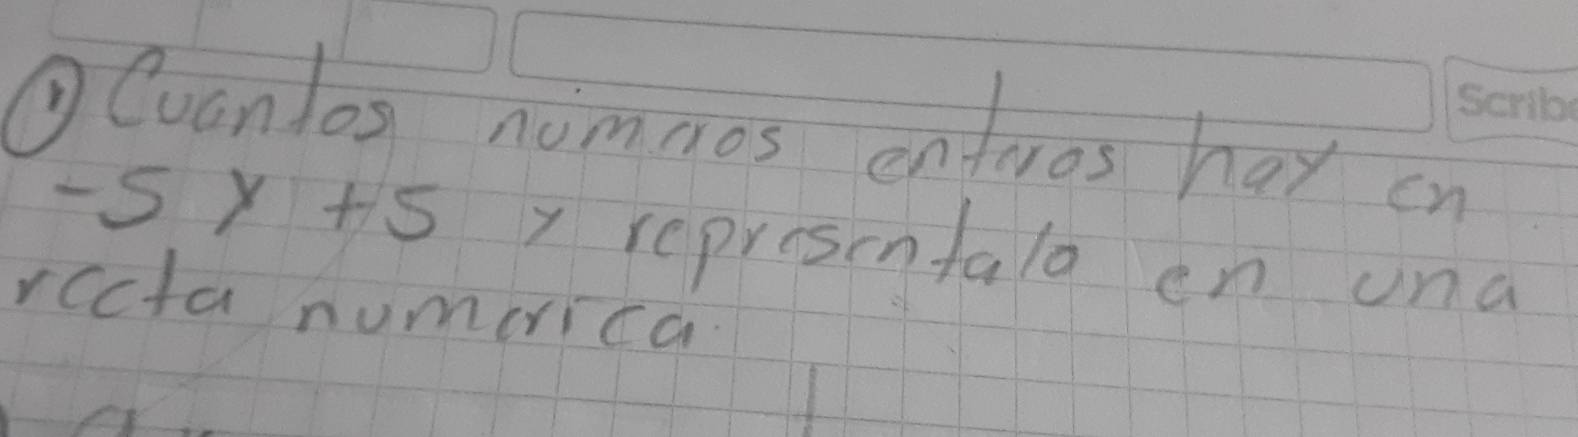 ① Cuantos numeros enteros hay en
-5 y +5 y representalo en una
recta numerica.
Scribe